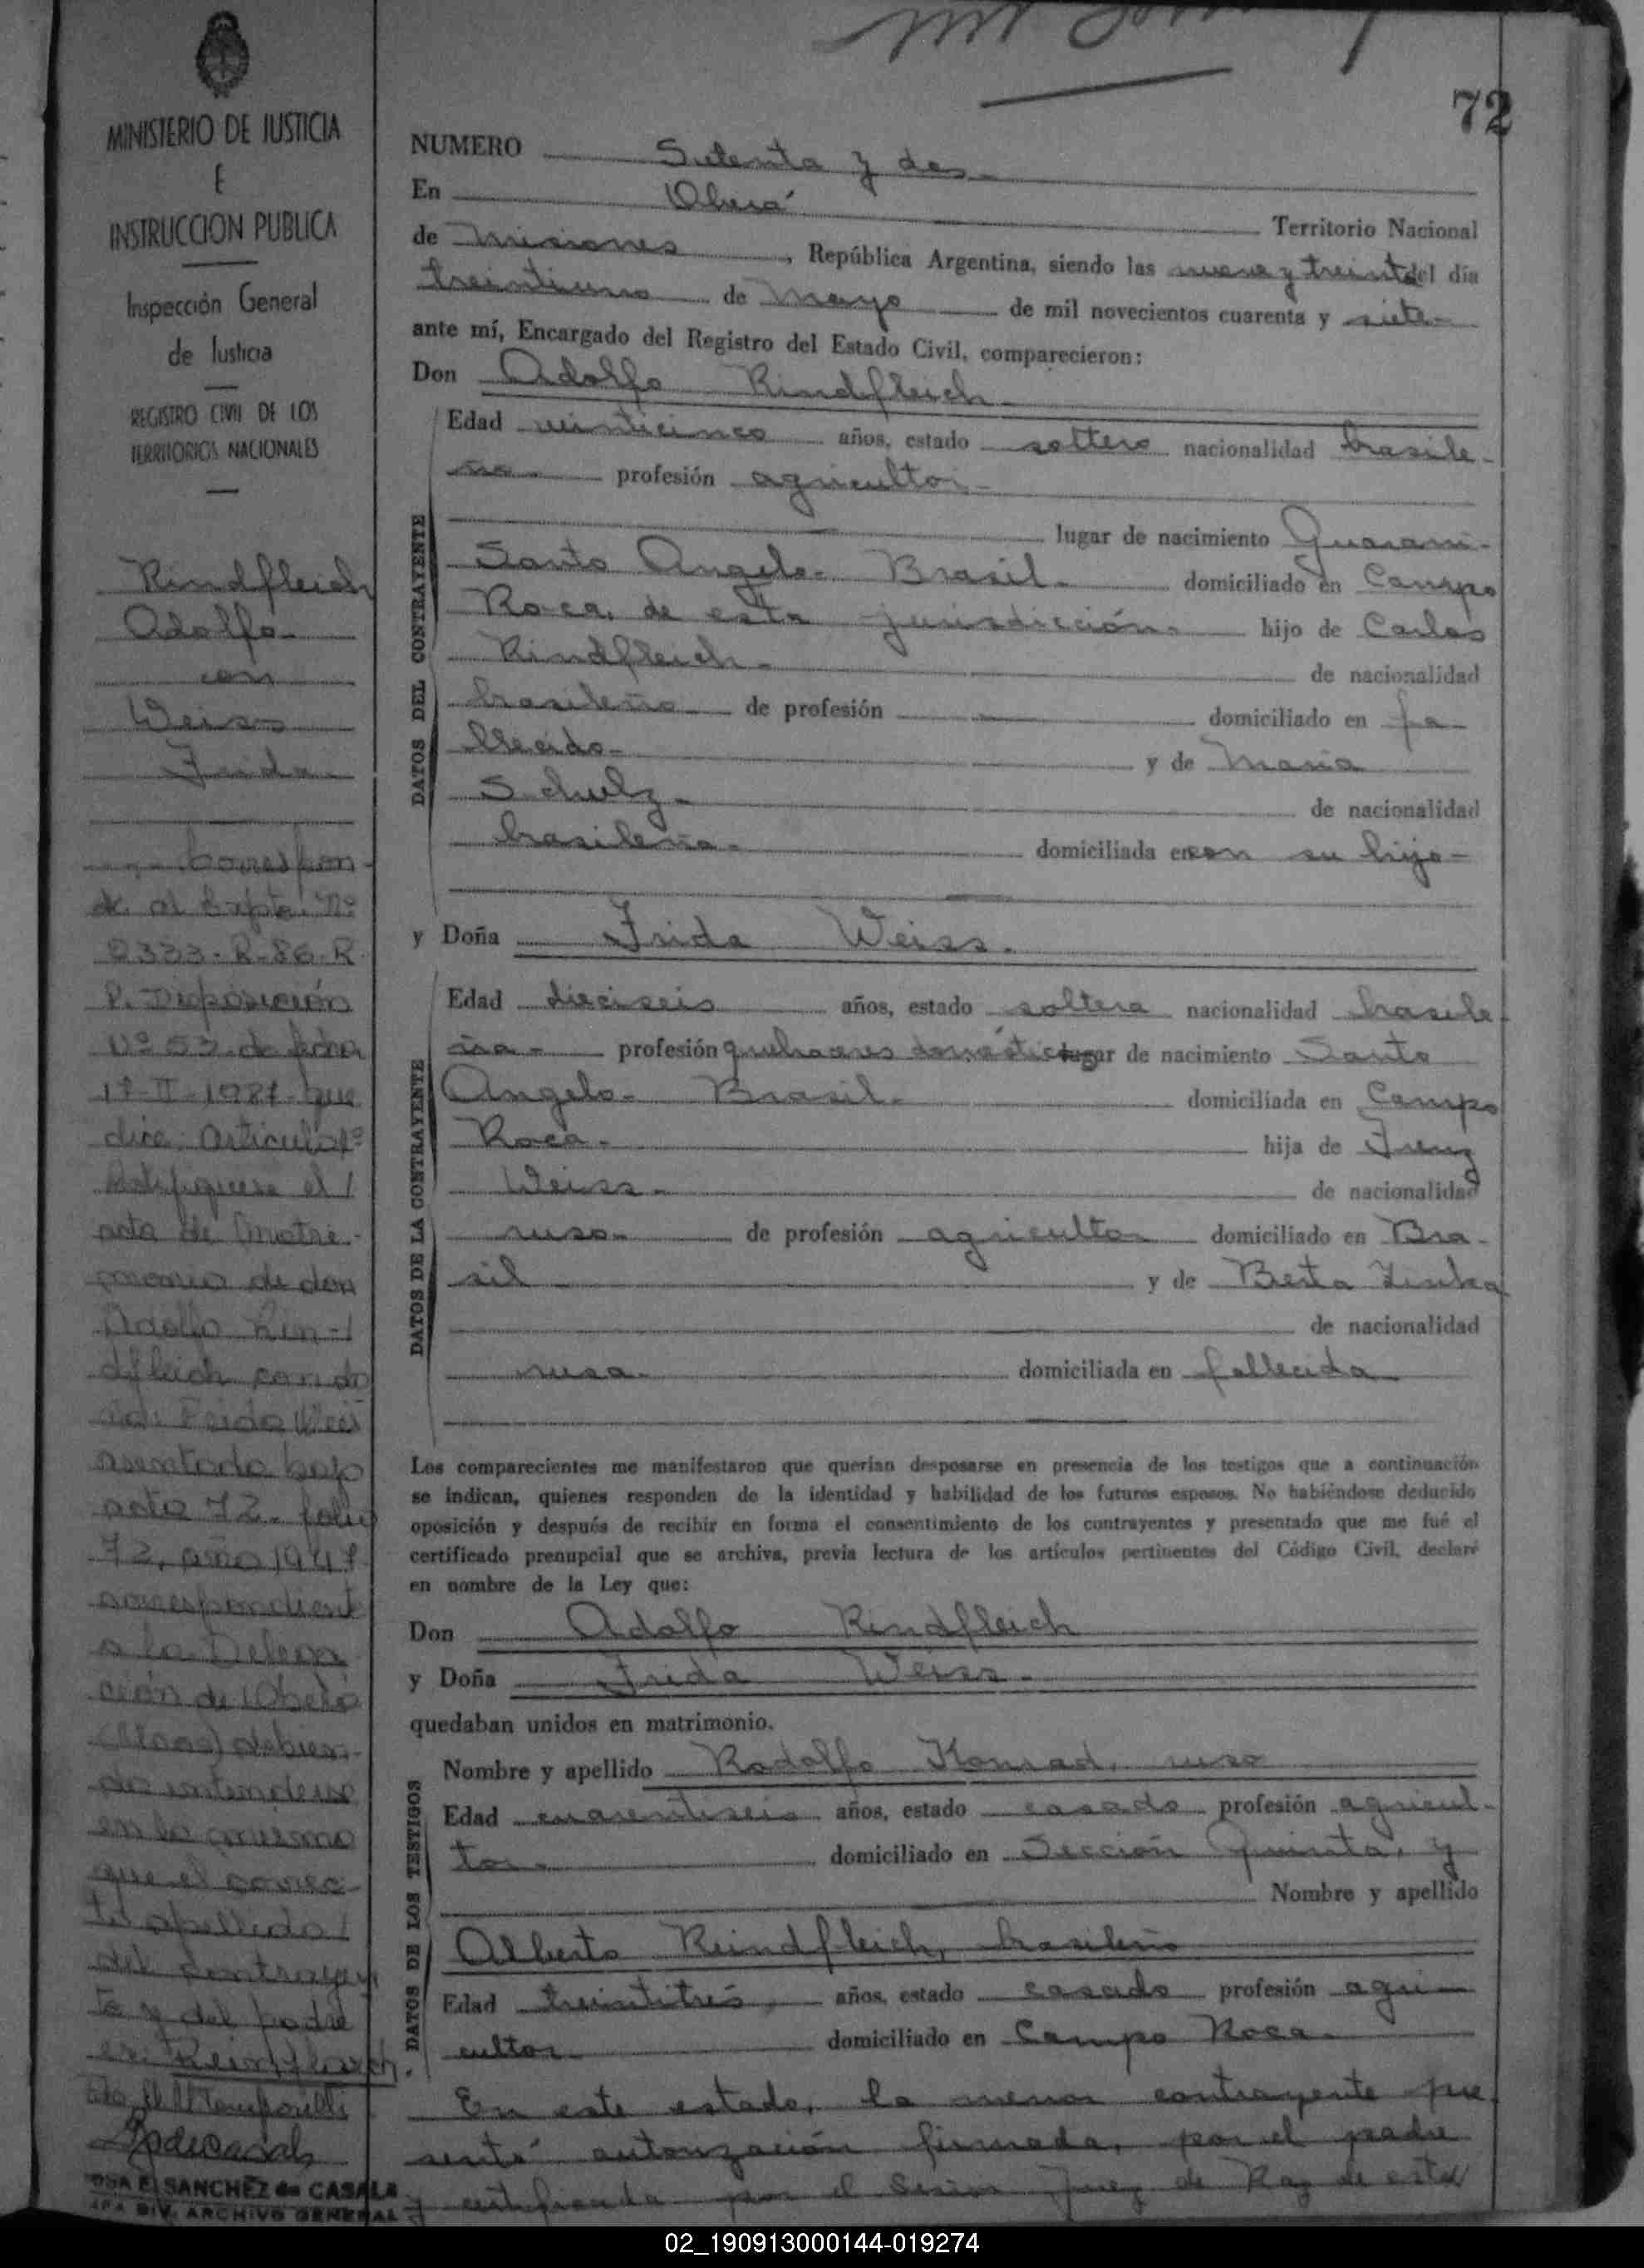 72
MINISTERIO DE JUSTICIA
E
INSTRUCCION PUBLICA
Inspección General
de Justicia
REGISTRO CIVIL DE LOS
TERRITORIOS NACIONALES
Rindfleich
Adolfo
con
Weiss
Frida
Correspon-
de al Expte. Nº
0333-R-86-R.
P. Disposición
Nº 53 de fecha
17-II-1987 que
dice: Articulo 1º
Ratifiquese el /
acta de matri-
monio de don
Adolfo Rin-/
dfleich con do
ña: Frida Weis
asentado bajo
acta 72. folio
72, año 1947
correspondiente
a la Delega
ción de Oberá
(Mnes) debien-
do entenderse
en la misma
que el correc-
to apellido /
del contrayen
te y del padre
es:
SANCHEZ de CASALA
DIV. ARCHIVO GENERAL
NUMERO Setenta y dos
En Oberá Territorio Nacional
de Misiones, República Argentina, siendo las nueve y treinta del día
treintiuno de Mayo de mil novecientos cuarenta y siete
ante mí, Encargado del Registro del Estado Civil, comparecieron:
Don Adolfo Rindfleich
DATOS DEL CONTRAYENTE
Edad veinticinco años, estado soltero nacionalidad brasile-
ño profesión agricultor
lugar de nacimiento Guarani-
Santo Angelo- Brasil- domiciliado en Campo
Roca, de esta jurisdicción hijo de Carlos
Rindfleich- de nacionalidad
brasileño de profesión domiciliado en fa-
llecido- y de Maria
Schulz- de nacionalidad
brasileña- domiciliada en con su hijo-
y Doña Frida Weiss.
DATOS DE LA CONTRAYENTE
Edad dieciseis años, estado soltera nacionalidad brasile-
ña- profesión quehaceres domésticos lugar de nacimiento Santo
Angelo- Brasil- domiciliada en Campo
Roca- hija de
Weiss- de nacionalidad
ruso- de profesión agricultor domiciliado en Bra-
sil y de Berta
de nacionalidad
rusa- domiciliada en fallecida
Los comparecientes me manifestaron que querían desposarse en presencia de los testigos que a continuación
se indican, quienes responden de la identidad y habilidad de los futuros esposos. No habiéndose deducido
oposición y después de recibir en forma el consentimiento de los contrayentes y presentado que me fué el
certificado prenupcial que se archiva, previa lectura de los artículos pertinentes del Código Civil, declaré
en nombre de la Ley que:
Don Adolfo Rindfleich
y Doña Frida Weiss-
quedaban unidos en matrimonio.
DATOS DE LOS TESTIGOS
Nombre y apellido Rodolfo Konrad, ruso
Edad cuarentiseis años, estado casado profesión agricul-
tor- domiciliado en Sección Quinta, y
Nombre y apellido
Alberto Reindfleich, brasileño
Edad treintitrés, años, estado casado profesión agri-
cultor domiciliado en Campo Roca-
En este estado, la menor contrayente pre-
sentó autorización firmada, por el padre
y certificada por el Señor Juez de Paz de esta
02_190913000144-019274